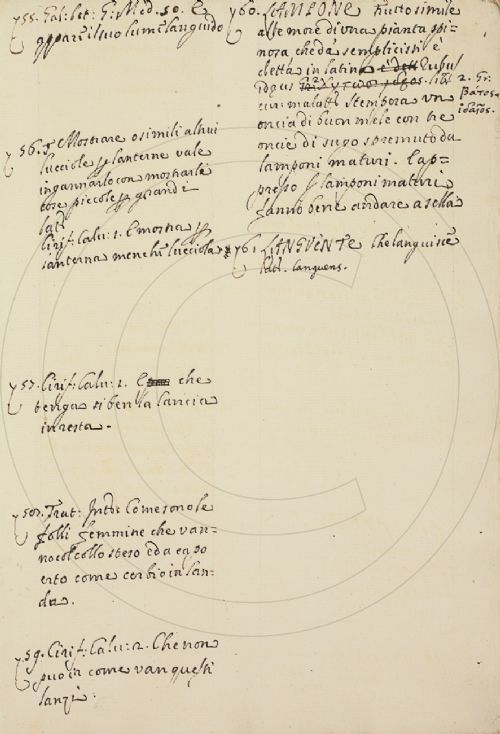 55. Gal: let: G: Med. 50. E
appari il suo lume languido
56. § Mostrare o simili altrui
lucciole p lanterne vale
ingannarlo con mostrarli
cose piccole p grandi
lat:
Cirif: Calu: 1. E mostra p
lanterna men ch'i lucciola
57. Cirif: Calu: 1. E che
tenga si ben la lancia
in resta.
Trat: Intd: Come sono le
folli femmine che van=
no col collo steso ed a capo
erto come cerbio in lan=
da.
59. Cirif: Calu: 2. Che non
puo ir come van questi
lanzi.
60. LAMPONE frutto simile
alle more di una pianta spi=
nosa che da semplicisti è
detta in latino è dett Rubus
Idæus
cur: malatt: Stempera un
oncia di buon miele con tre
oncie di sugo spremuto da
lamponi maturi. E ap=
presso i lamponi maturi
fanno bene andare a sella
2. Gr:
Βάτος
61. LANGUENTE Che languisce
lat. languens.